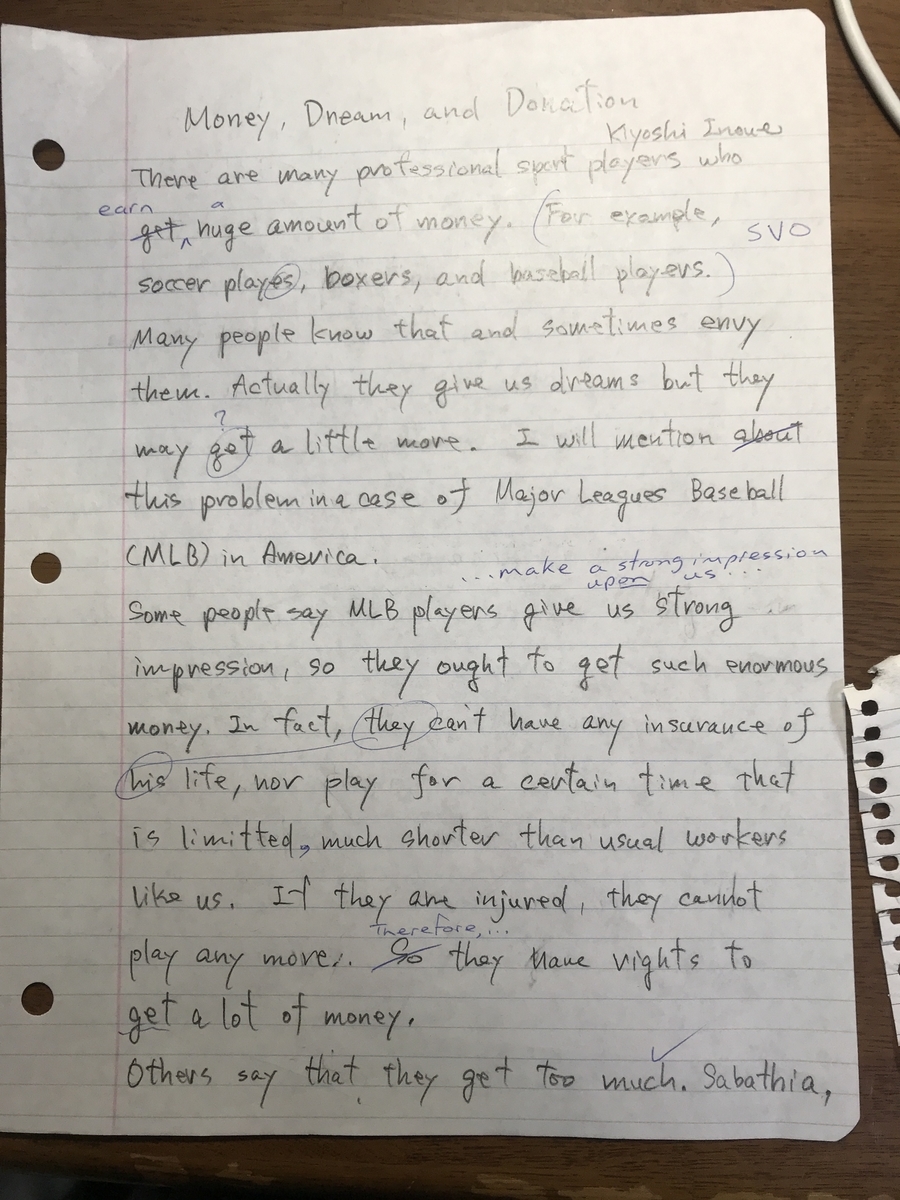 Money, Dream, and Donation
Kiyoshi Inoue
There are many professional sport players who
earn a
get, huge amount of money. (For example,
SVO
soccer playes, boxers, and baseball players.)
Many people know that and sometimes envy
them. Actually they give us dreams but they
?
may get a little more. I will mention about
this problem in a case of Major Leagues Baseball
(MLB) in America.
...make a strong impression
upon us...
Some people say MLB players give us strong
impression, so they ought to get such enormous
money. In fact, they can't have any insurance of
his life, nor play for a certain time that
is limitted, much shorter than usual workers
like us. If they are injured, they cannot
Therefore,...
play any more. So they have rights to
get a lot of money.
Others say that they get too much. Sabathia,